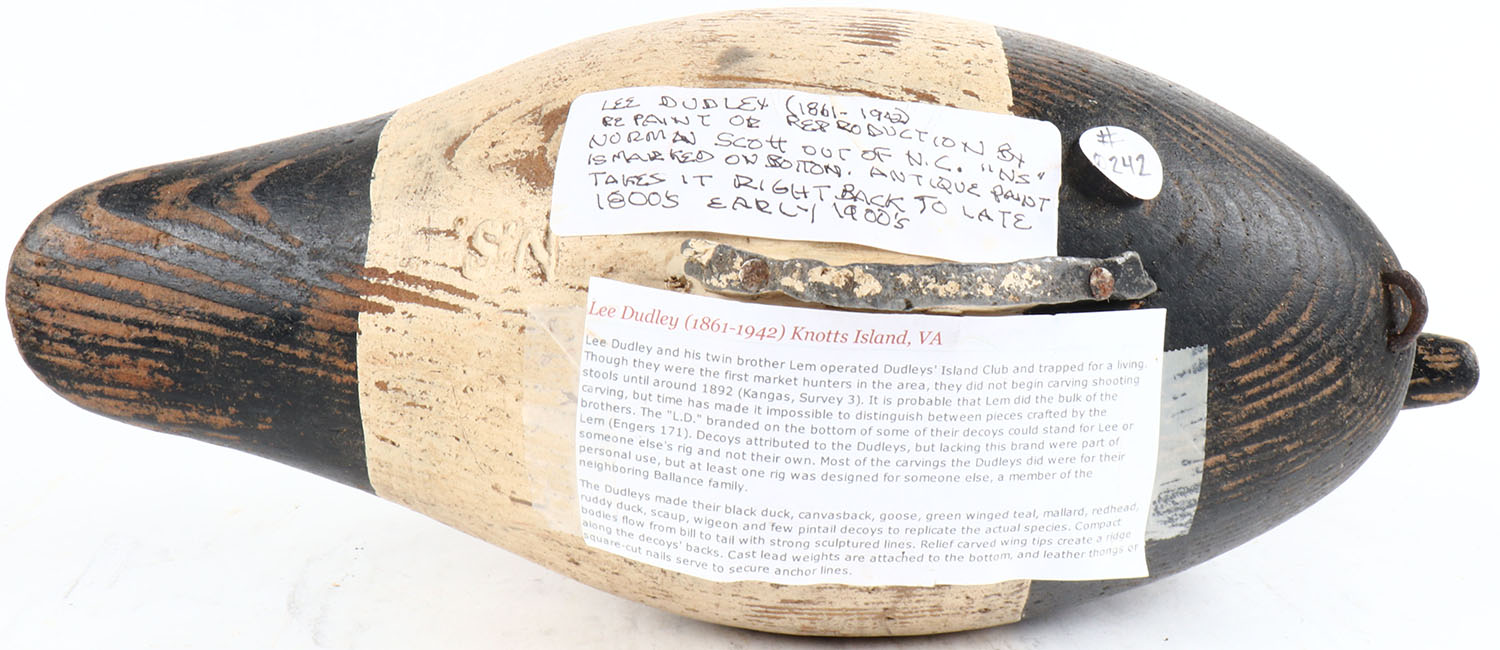 LEE DUDLEY (1861-1942)
REPAINT OR REPRODUCTION BY
NORMAN SCOTT OUT OF N.C. "NS"
IS MARKED ON BOTTOM. ANTIQUE PAINT
TAKES IT RIGHT BACK TO LATE
1800'S EARLY 1900'S
#
242
N.S.
Lee Dudley (1861-1942) Knotts Island, VA
Lee Dudley and his twin brother Lem operated Dudleys' Island Club and trapped for a living.
Though they were the first market hunters in the area, they did not begin carving shooting
stools until around 1892 (Kangas, Survey 3). It is probable that Lem did the bulk of the
carving, but time has made it impossible to distinguish between pieces crafted by the
brothers. The "L.D." branded on the bottom of some of their decoys could stand for Lee or
Lem (Engers 171). Decoys attributed to the Dudleys, but lacking this brand were part of
someone else's rig and not their own. Most of the carvings the Dudleys did were for their
personal use, but at least one rig was designed for someone else, a member of the
neighboring Ballance family.
The Dudleys made their black duck, canvasback, goose, green winged teal, mallard, redhead,
ruddy duck, scaup, wigeon and few pintail decoys to replicate the actual species. Compact
bodies flow from bill to tail with strong sculptured lines. Relief carved wing tips create a ridge
along the decoys' backs. Cast lead weights are attached to the bottom, and leather thongs or
square-cut nails serve to secure anchor lines.